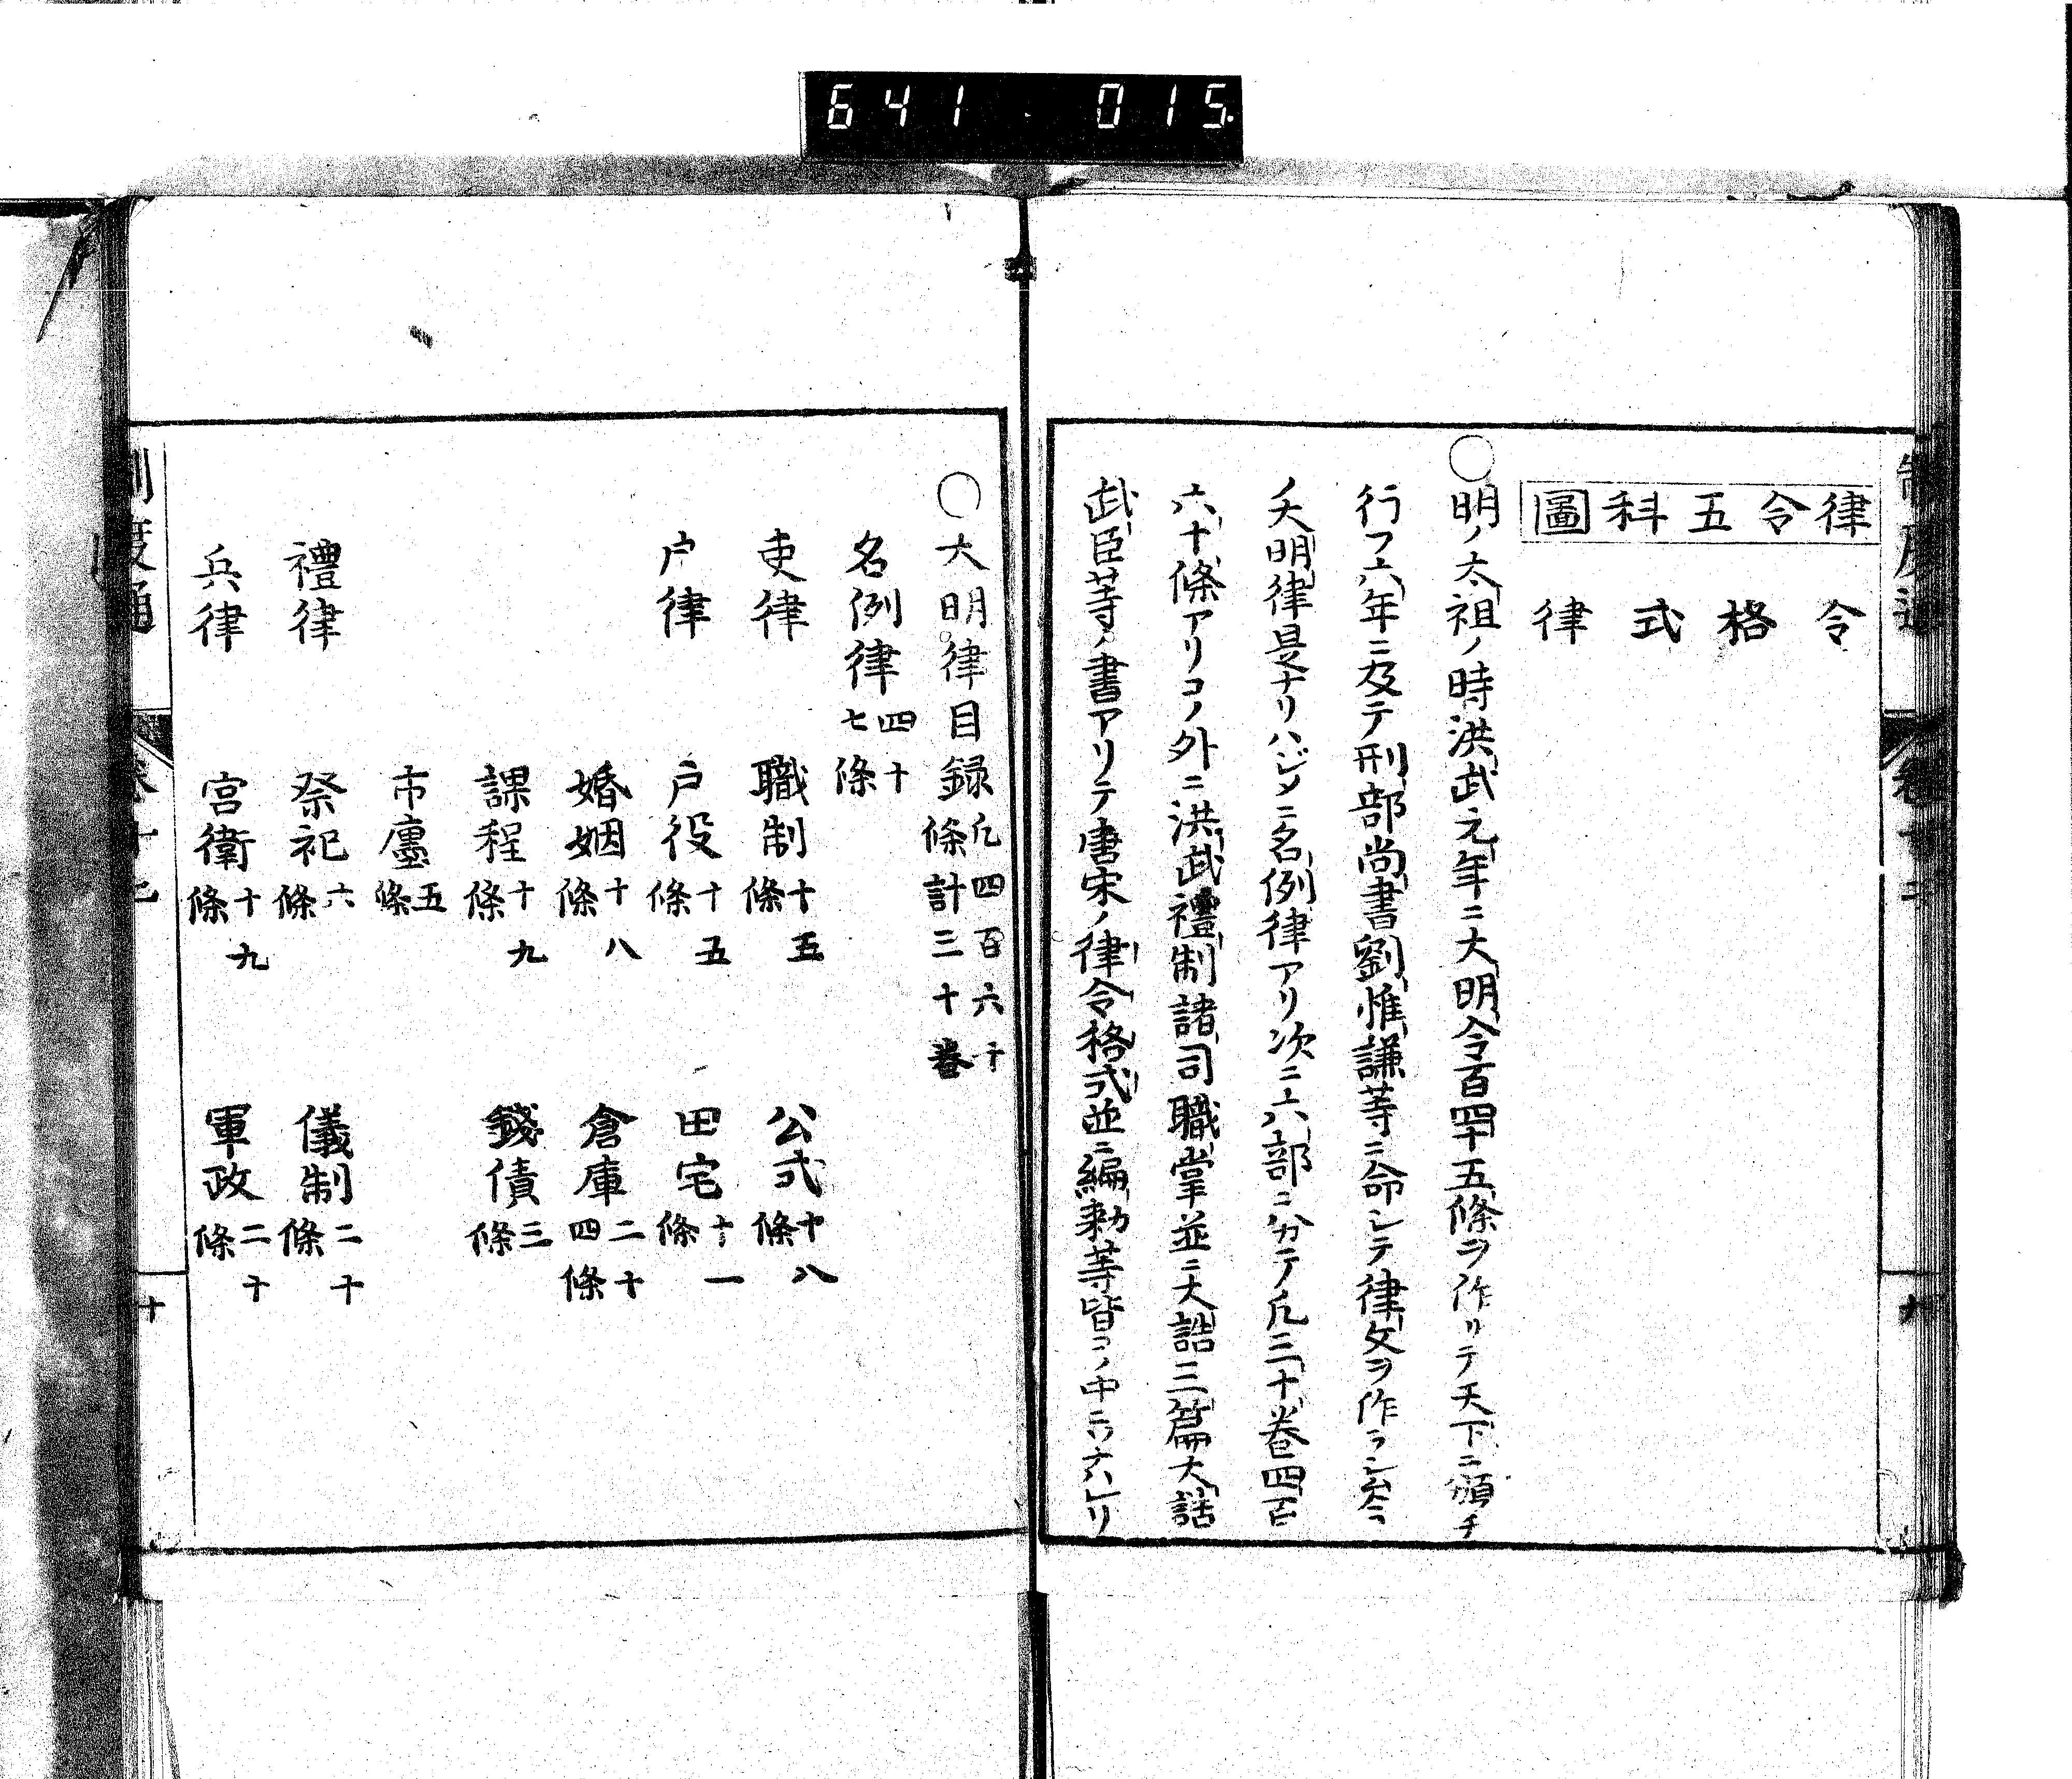 641 015
律令五科圖
令
格
式
律
○明ノ太祖ノ時洪武元年ニ大明令百四十五條ヲ作リテ天下ニ頒チ
行フ六年ニ及テ刑部尚書劉惟謙等ニ命シテ律文ヲ作ラシム今ニ
ノ大明律是ナリハジメニ名例律アリ次ニ六部ニ分テ凡三十卷四百
六十條アリコノ外ニ洪武禮制諸司職掌並ニ大誥三篇大誥
武臣等ノ書アリテ唐宋ノ律令格式並ニ編勅等皆コノ中ニ
○大明律目録凡四百六十條計三十卷
名例律四十七條
吏律 職制十五條 公式十八條
户律 户役十五條 田宅十一條
婚姻十八條 倉庫二十四條
課程十九條 錢債三條
市廛五條
禮律 祭祀六條 儀制二十條
兵律 宮衛十九條 軍政二十條
制度通 十